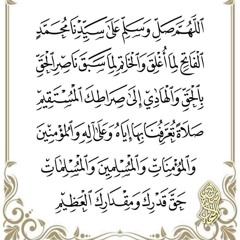 اللَّهُمَّ صَلِّ وَسَلِّمْ عَلَى سَيِّدِنَا مُحَمَّدٍ
الْفَاتِحِ لِمَا أُغْلِقَ وَالْخَاتِمِ لِمَا سَبَقَ نَاصِرِ الْحَقِّ
بِالْحَقِّ وَالْهَادِي إِلَى صِرَاطِكَ الْمُسْتَقِيمِ
صَلَاةً تُعَرِّفُنَا بِهَا إِيَّاهُ وَعَلَى آلِهِ وَالْمُؤْمِنِينَ
وَالْمُؤْمِنَاتِ وَالْمُسْلِمِينَ وَالْمُسْلِمَاتِ
حَقَّ قَدْرِكَ وَمِقْدَارِكَ الْعَظِيمِ